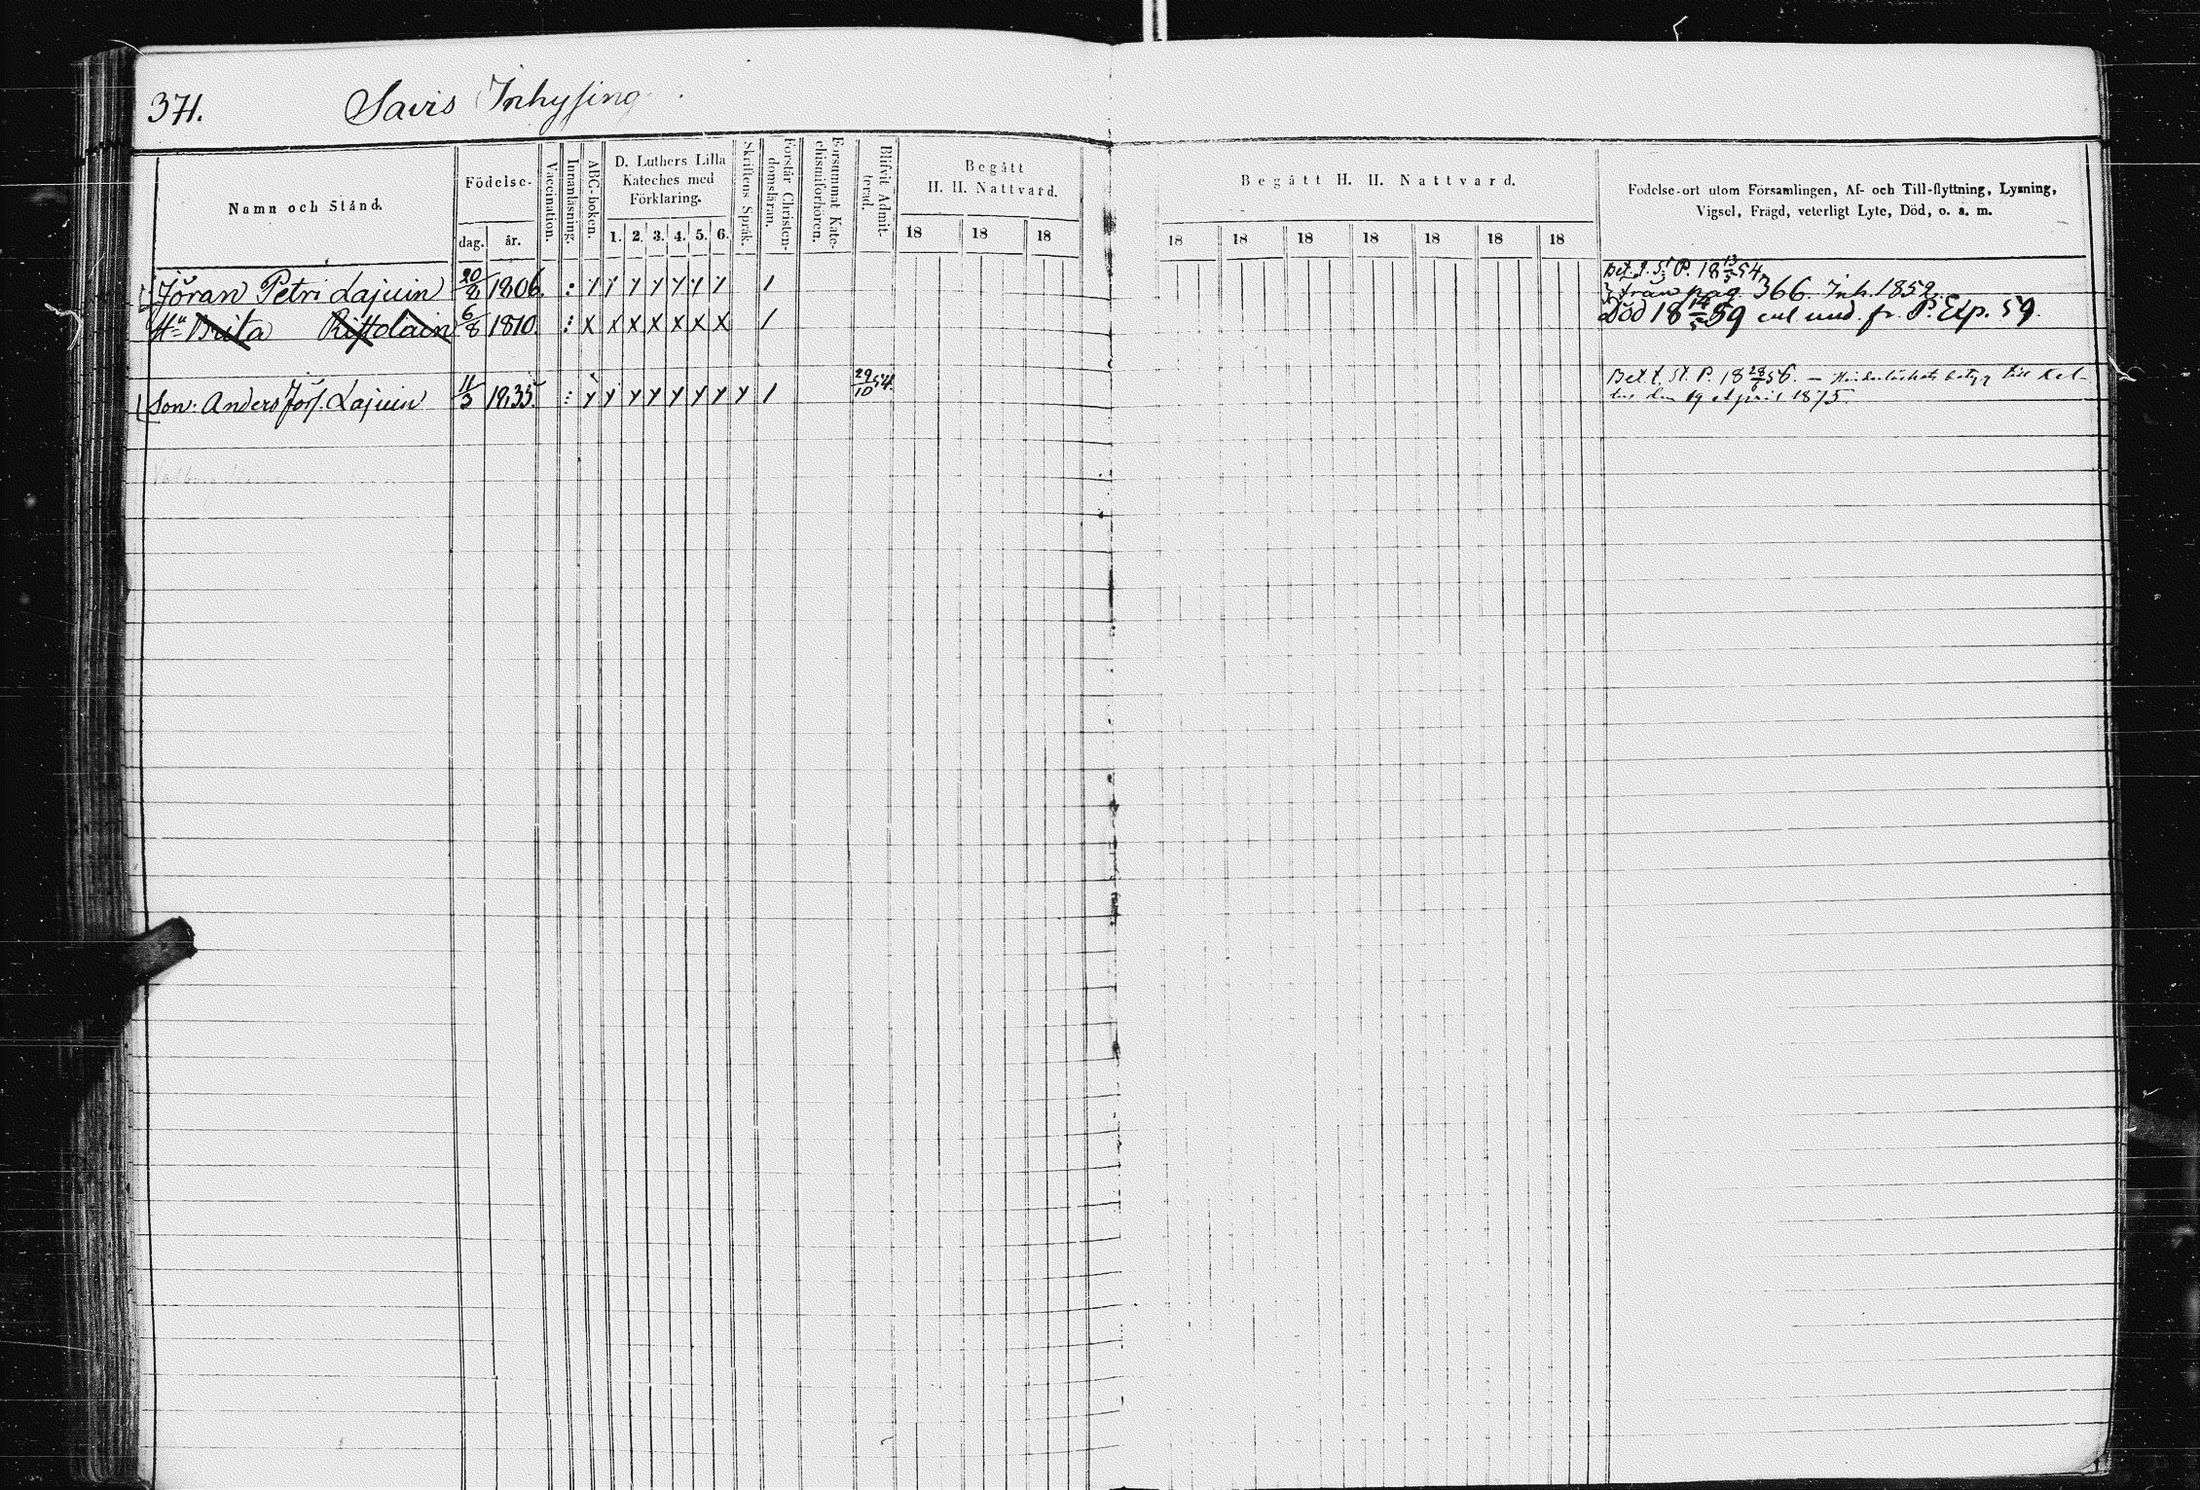 371. Savis Inhysing
Namn och Stånd.
Födelse-
dag. år.
Vaccination.
Innanläsning.
ABC-boken.
D. Luthers Lilla
Kateches med
Förklaring.
1. 2. 3. 4. 5. 6.
Skriftens Språk.
Förstår Christen-
domsläran.
Försummat Kate-
chismiförhören.
Blifvit Admit-
terad.
Begått
H. H. Nattvard.
18 18 18
Begått H. H. Nattvard.
18 18 18 18 18 18 18
Födelse-ort utom Församlingen, Af- och Till-flyttning, Lysning,
Vigsel, Frägd, veterligt Lyte, Död, o. s. m.
Jöran Petri Lajuin 20/8 1806. : y y y y y y y /
Bet. t. St P. 18 13/5 54.
från pag. 366. Inh. 1852.
Hu Brita 6/8 1810. : x x x x x x x /
Död 18 14/5 59 enl und. fr. P. Exp. 59.
Son: Anders Jörs. Lajuin 11/3 1835. : y y y y y y y y / 29/10 54.
Bet. t. St. P. 18 28/6 56. — till
den 19 April 1875.